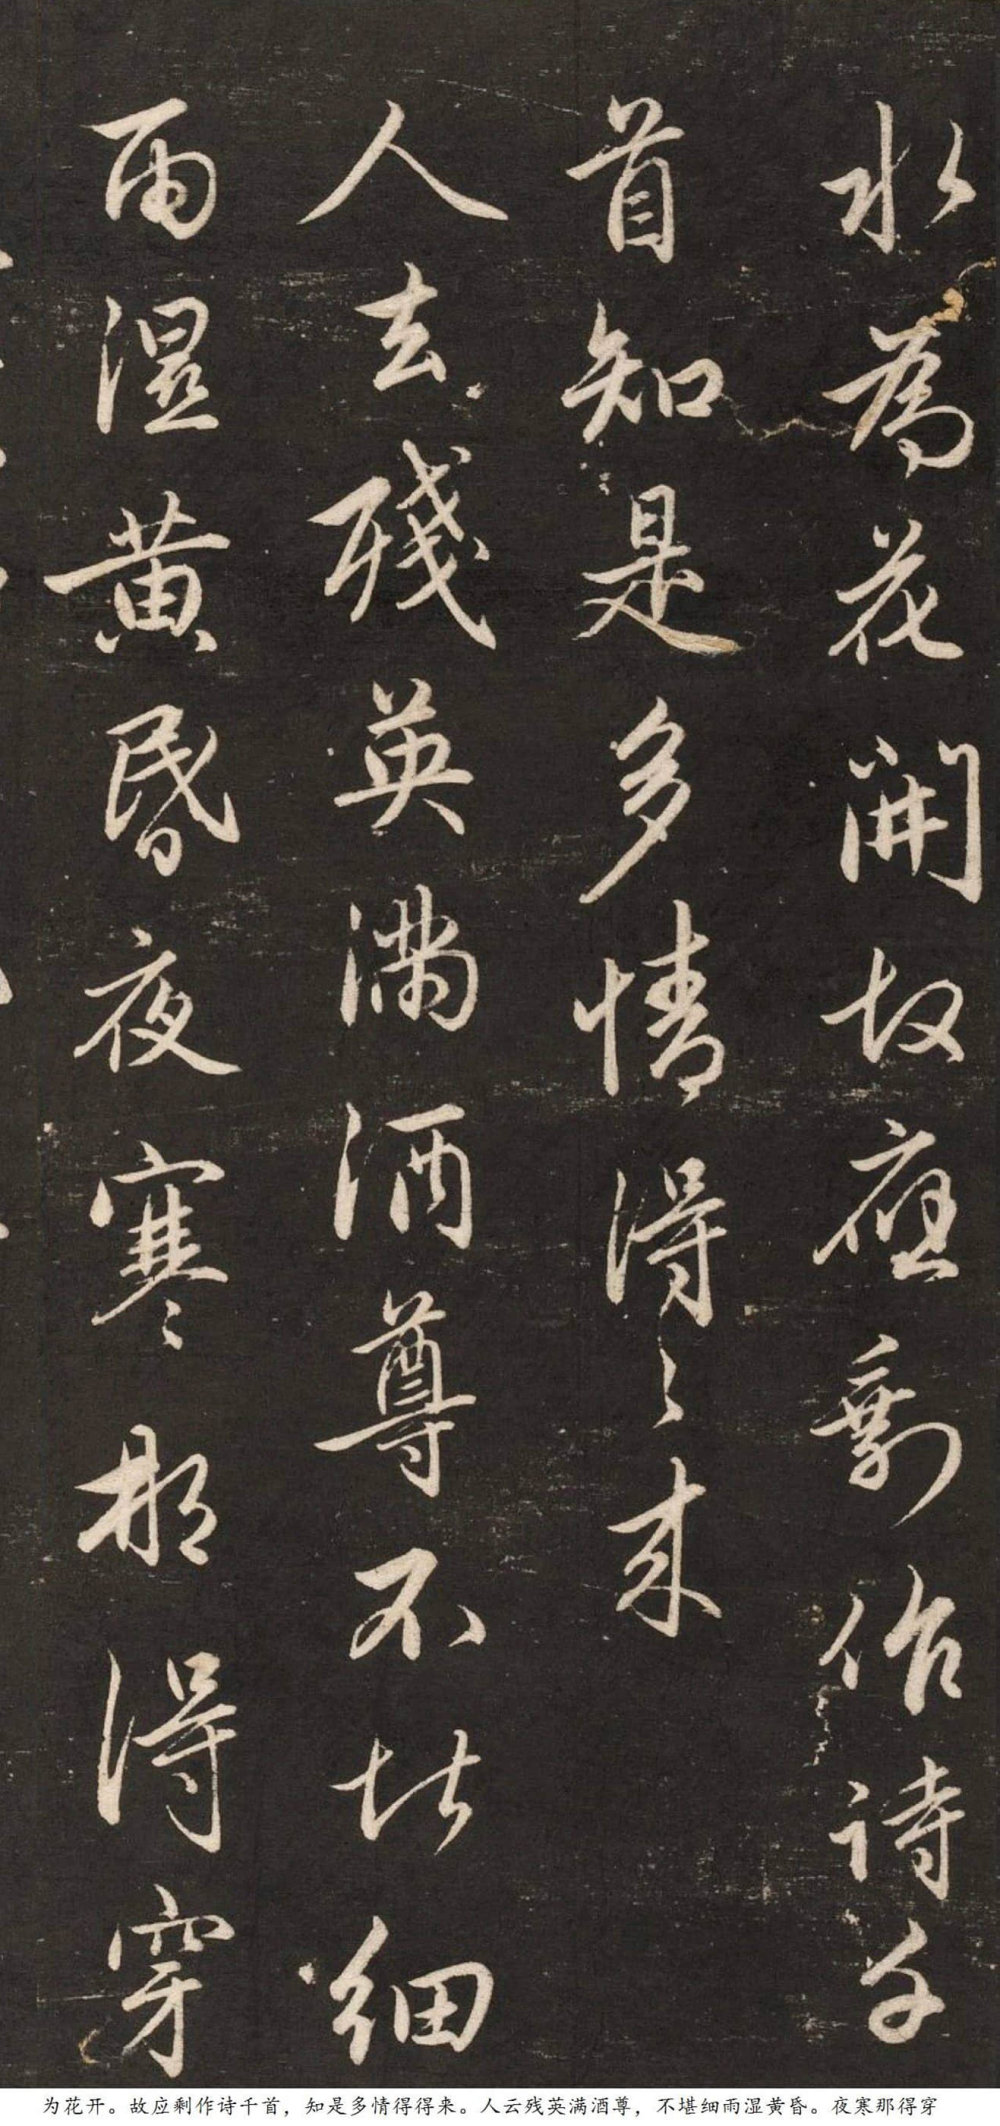 水為花開故應剩作詩千
首知是多情得〻来
人去殘英滿酒尊不堪細
雨濕黄昏夜寒那得穿
为花开。故应剩作诗千首，知是多情得得来。人云残英满酒尊，不堪细雨湿黄昏。夜寒那得穿